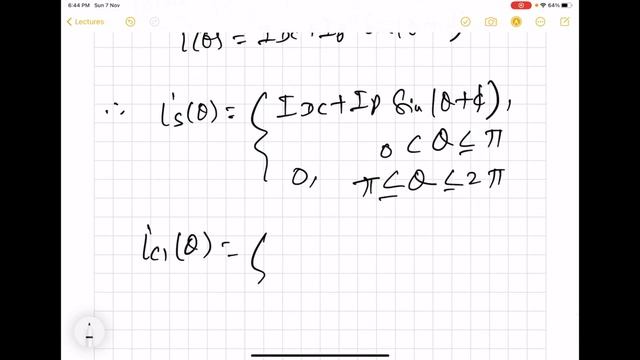 6:44 PM Sun 7 Nov
64%
Lectures
∴ is(θ) = { IDC + ID Sin(θ+ϕ),
0 < θ ≤ π
0, π ≤ θ ≤ 2π
ic1(θ) = {